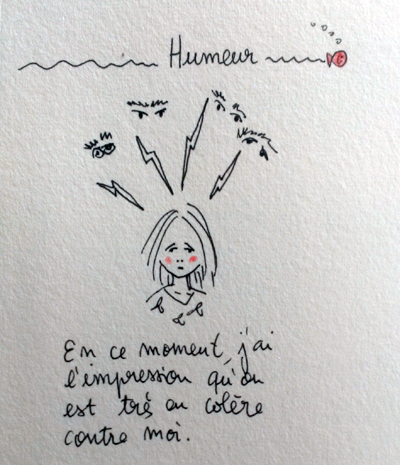 Humeur
En ce moment, j'ai
l'impression qu'on
est très en colère
contre moi.